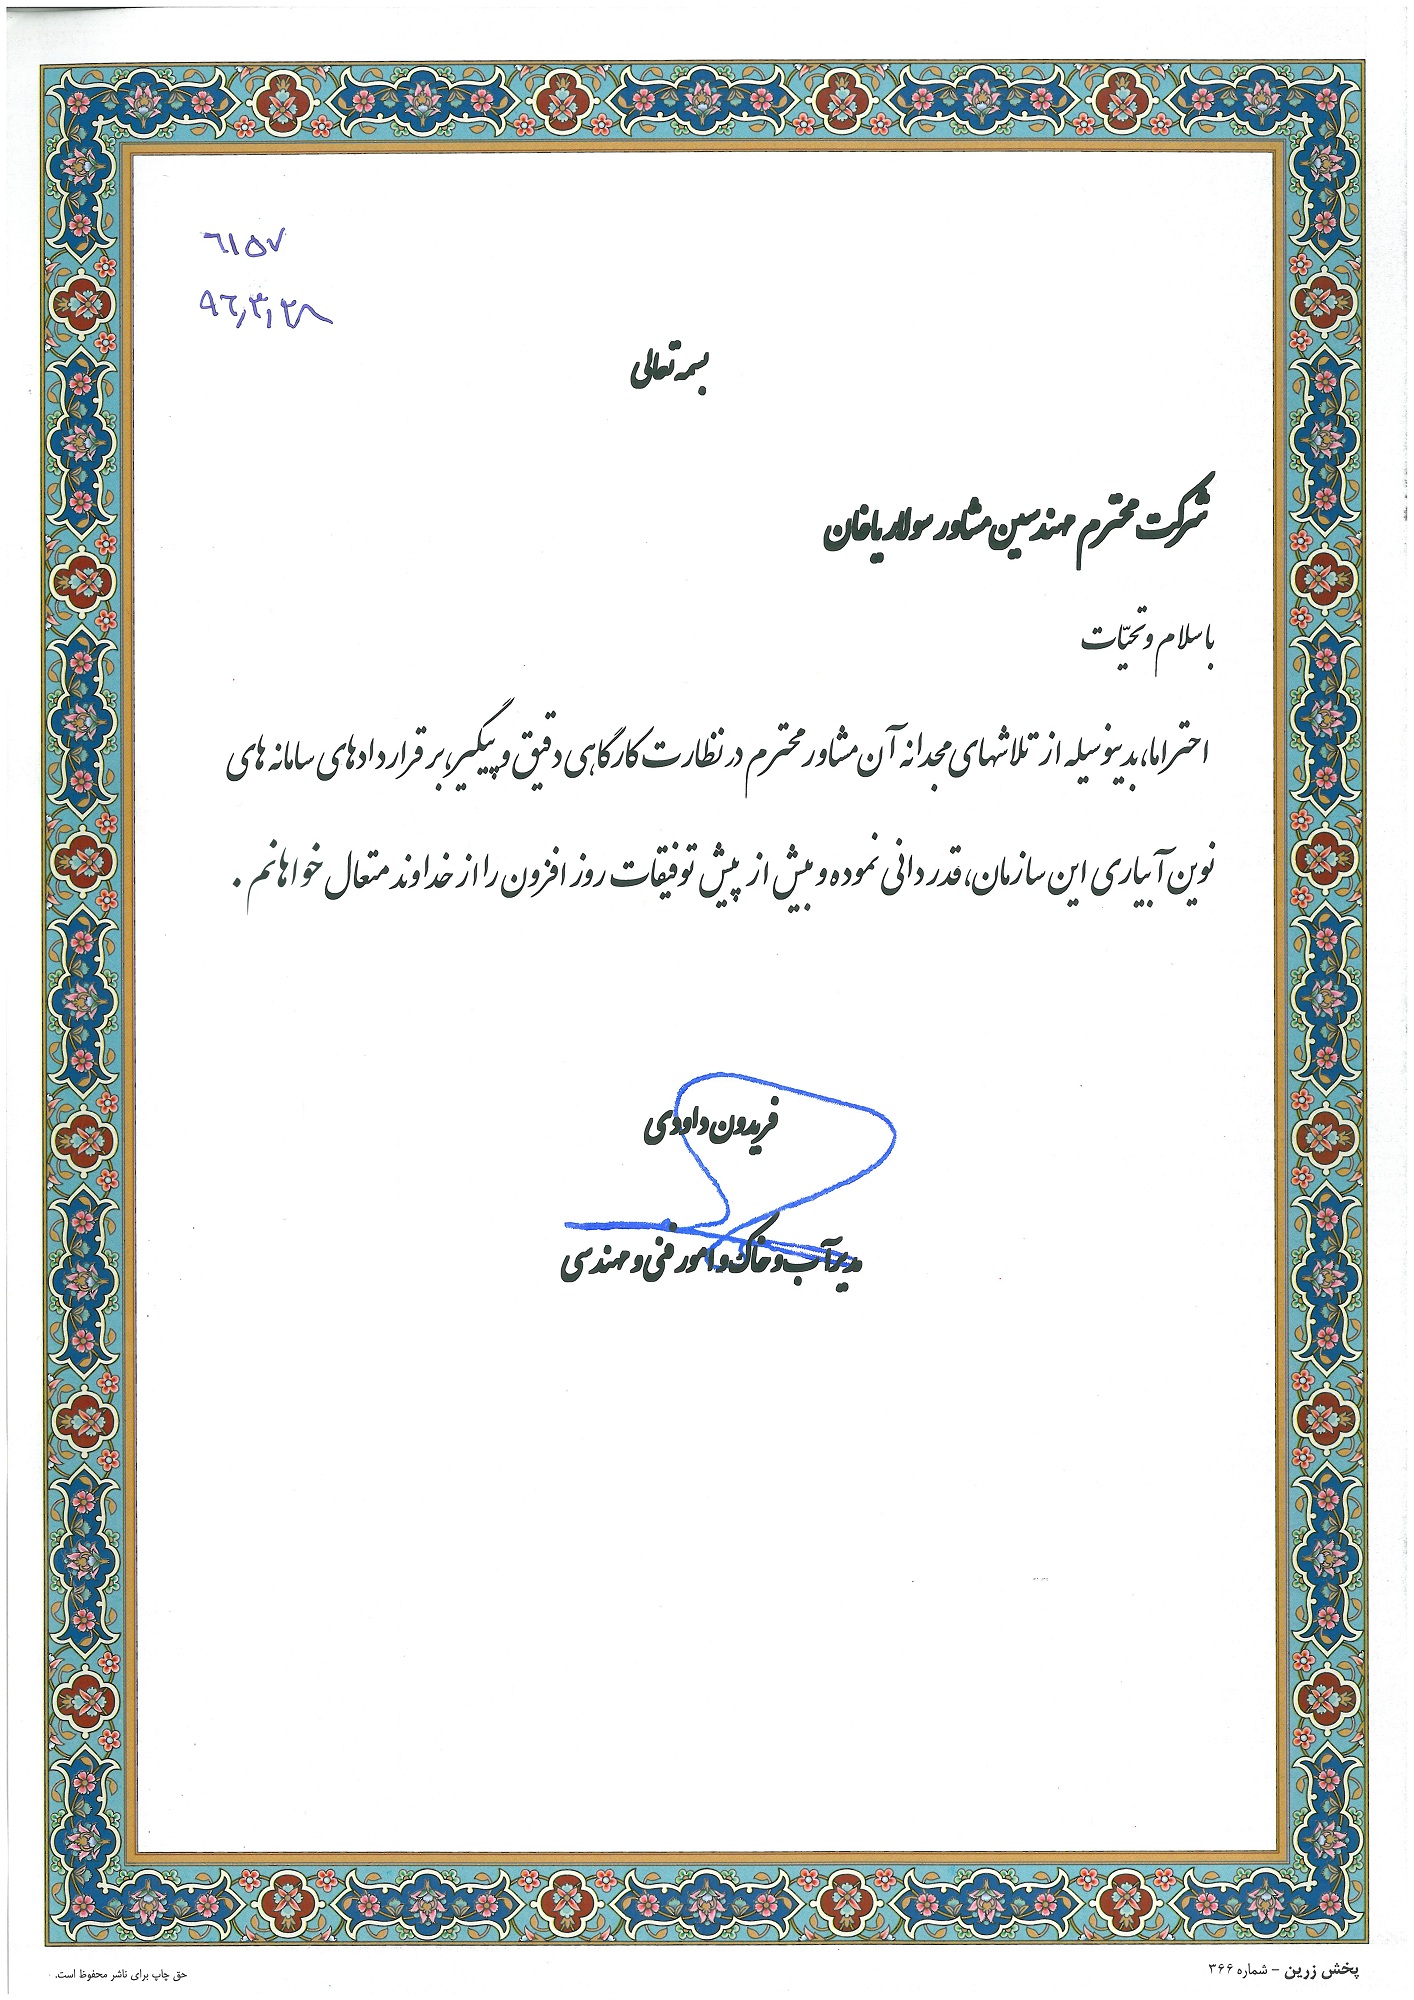 ٦١٥٧
٩٦,٣,٢٨
بسمه تعالی
شرکت محترم مهندسین مشاور سولار یاخان
با سلام و تحیّات
احتراما، بدینوسیله از تلاشهای مجدانه آن مشاور محترم در نظارت کارگاهی دقیق و پیگیر، بر قراردادهای سامانه های
نوین آبیاری این سازمان، قدردانی نموده و بیش از پیش توفیقات روز افزون را از خداوند متعال خواهانم .
فریدون داودی
مدیر آب و خاک و امور فنی و مهندسی
پخش زرین - شماره ۳۶۶
حق چاپ برای ناشر محفوظ است.